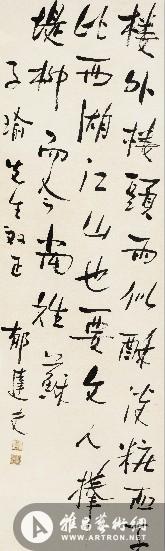 楼外楼頭雨似酥淡粧西子
比西湖江山也要文人捧
堤柳而今尚姓蘇
子瑜先生教正
郁達夫
雅昌艺术网
ARTRON.NET